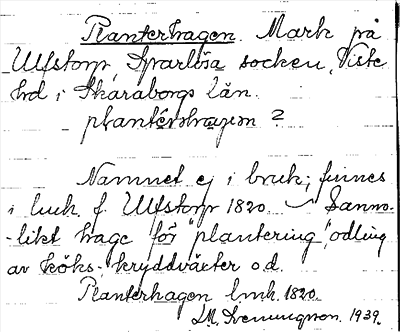 Planterhagen. Mark på
Ulfstorp, Sparlösa socken, Viste
hd i Skaraborgs län.
plantershagen ?
Namnet ej i bruk; finnes
i lmk. f. Ulfstorp 1820. Sanno-
-likt hage för "plantering", odling
av köks-, kryddväxter o.d.
Planterhagen lmk. 1820.
Svenungson. 1939.